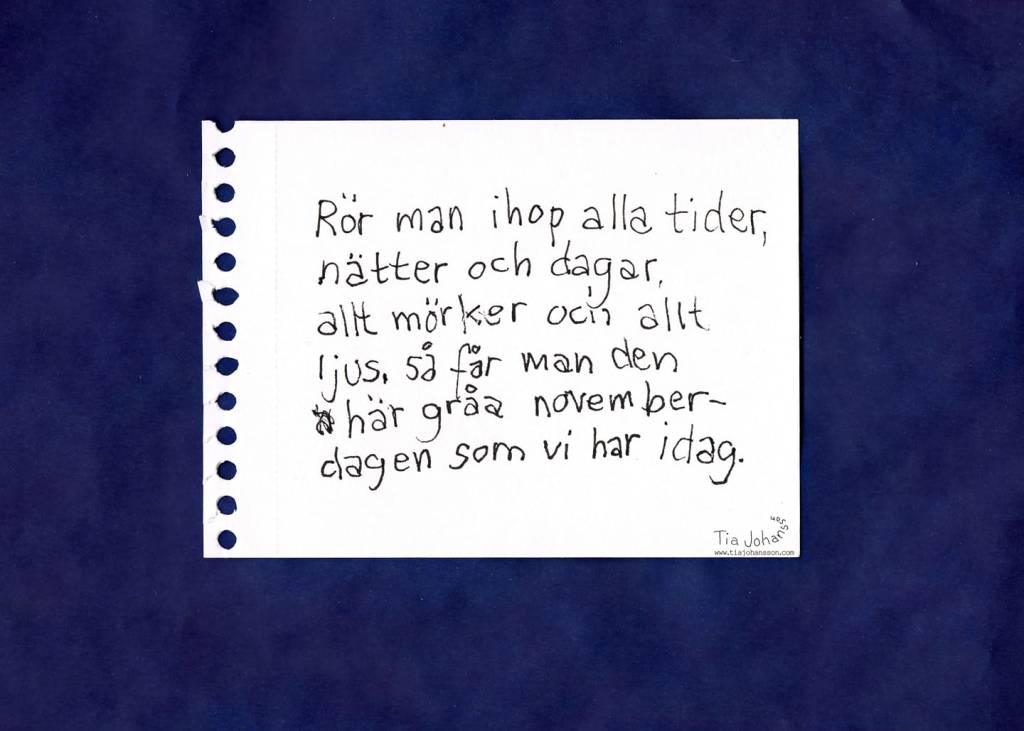 Rör man ihop alla tider,
nätter och dagar,
allt mörker och allt
ljus, så får man den
här gråa november-
dagen som vi har idag.
Tia Johansson
www.tiajohansson.com